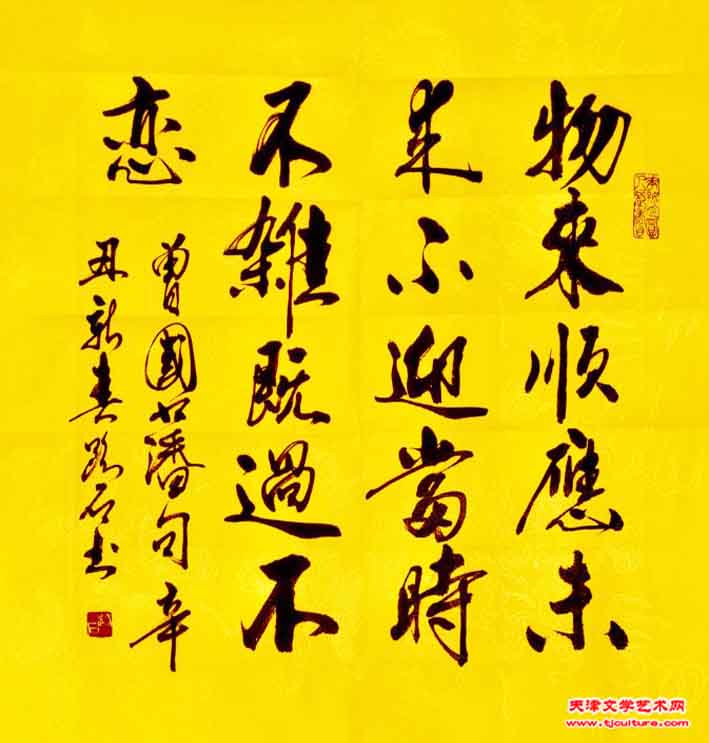 物來順應未
来不迎當時
不雜既過不
恋
曾國藩句辛
丑新春路石书
天津文学艺术网
www.tjculture.com